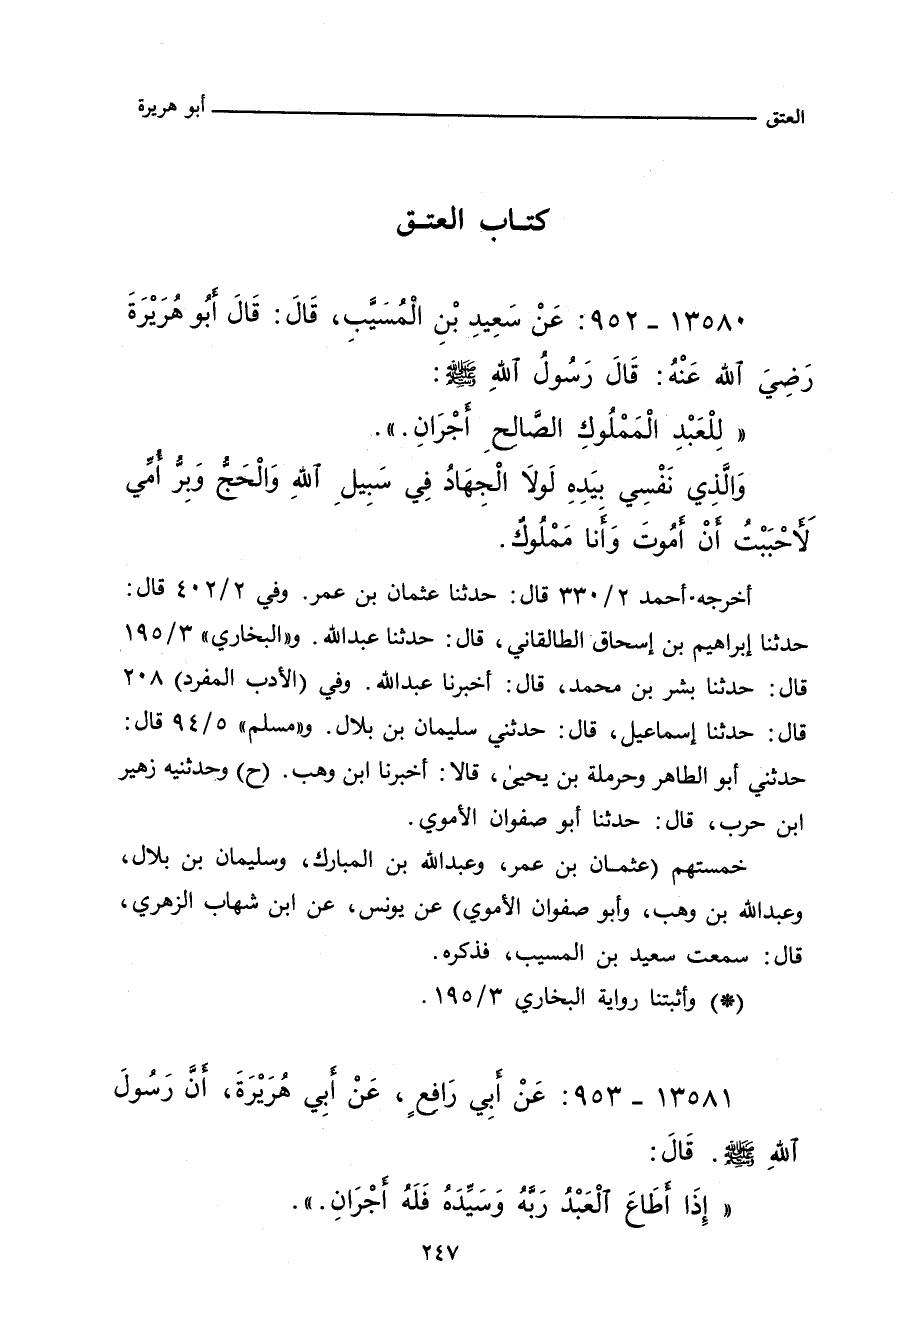 العتق ـــــــــــــــــــــــــــــــ أبو هريرة
كتاب العتق
١٣٥٨٠ ـ ٩٥٢: عَنْ سَعِيدِ بْنِ الْمُسَيَّبِ، قَالَ: قَالَ أَبُو هُرَيْرَةَ
رَضِيَ ٱللّٰه عَنْهُ: قَالَ رَسُولُ ٱللّٰهِ ﷺ:
« لِلْعَبْدِ الْمَمْلُوكِ الصَّالِحِ أَجْرَانِ.».
وَالَّذِي نَفْسِي بِيَدِهِ لَولَا الْجِهَادُ فِي سَبِيلِ ٱللّٰهِ وَالْحَجُّ وَبِرُّ أُمِّي
لَأَحْبَبْتُ أَنْ أَمُوتَ وَأَنا مَمْلُوكٌ.
أخرجه أحمد ٣٣٠/٢ قال: حدثنا عثمان بن عمر. وفي ٤٠٢/٢ قال:
حدثنا إبراهيم بن إسحاق الطالقاني، قال: حدثنا عبدالله. و«البخاري» ١٩٥/٣
قال: حدثنا بشر بن محمد، قال: أخبرنا عبدالله. وفي (الأدب المفرد) ٢٠٨
قال: حدثنا إسماعيل، قال: حدثني سليمان بن بلال. و«مسلم» ٩٤/٥ قال:
حدثني أبو الطاهر وحرملة بن يحيىٰ، قالا: أخبرنا ابن وهب. (ح) وحدثنيه زهير
ابن حرب، قال: حدثنا أبو صفوان الأموي.
خمستهم (عثمان بن عمر، وعبدالله بن المبارك، وسليمان بن بلال،
وعبدالله بن وهب، وأبو صفوان الأموي) عن يونس، عن ابن شهاب الزهري،
قال: سمعت سعيد بن المسيب، فذكره.
(*) وأثبتنا رواية البخاري ١٩٥/٣.
١٣٥٨١ ـ ٩٥٣: عَنْ أَبِي رَافِعٍ، عَنْ أَبِي هُرَيْرَةَ، أَنَّ رَسُولَ
ٱللّٰهِ ﷺ. قَالَ:
« إِذَا أَطَاعَ ٱلْعَبْدُ رَبَّهُ وَسَيِّدَهُ فَلَهُ أَجْرَانِ.».
٢٤٧